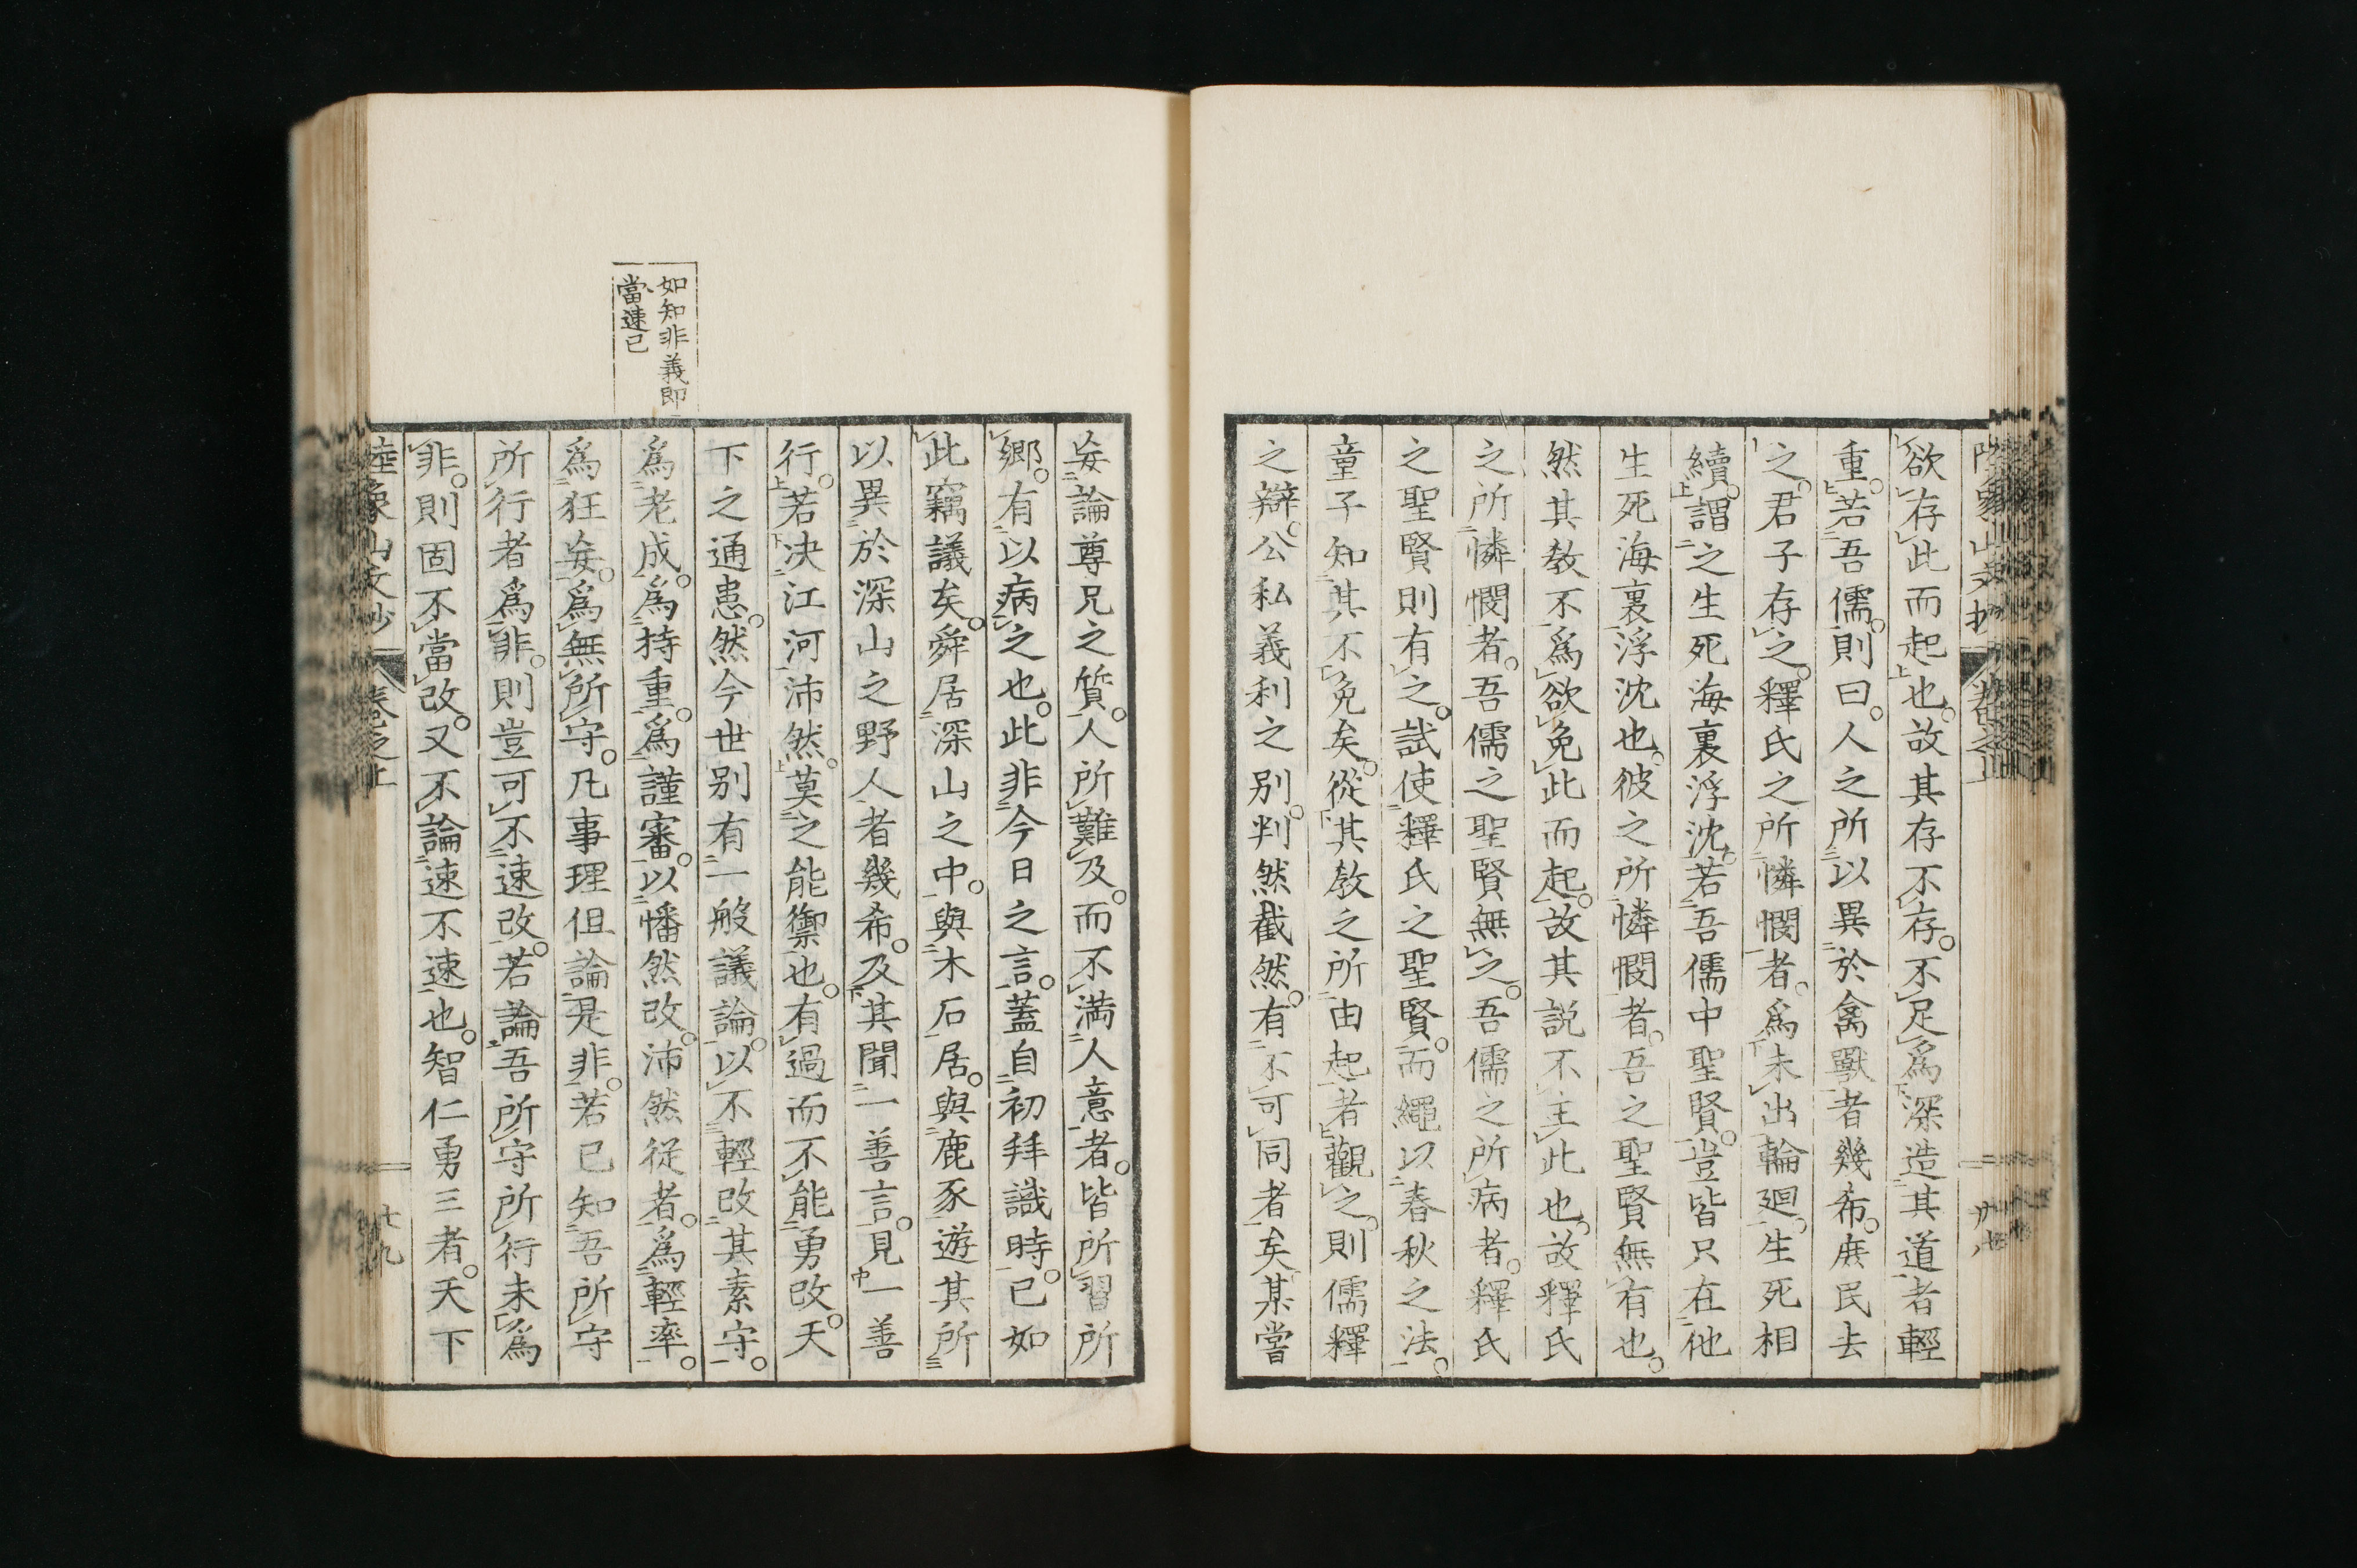 欲存此而起也故其存不存不足爲深造其道者輕
重若吾儒則曰人之所以異於禽獸者幾希庶民去
之君子存之釋氏之所憐憫者爲未出輪廻生死相
續謂之生死海裏浮沈若吾儒中聖賢豈皆只在他
生死海裏浮沈也彼之所憐憫者吾之聖賢無有也
然其敎不爲欲免此而起故其説不主此也故釋氏
之所憐憫者吾儒之聖賢無之吾儒之所病者釋氏
之聖賢則有之試使釋氏之聖賢而繩以春秋之法
童子知其不免矣從其敎之所由起者觀之則儒釋
之辯公私義利之別判然截然有不可同者矣某嘗
妄論尊兄之質人所難及而不満人意者皆所習所
鄉有以病之也此非今日之言蓋自初拜識時已如
此竊議矣舜居深山之中與木石居與鹿豕遊其所
以異於深山之野人者幾希及其聞一善言見一善
行若决江河沛然莫之能禦也有過而不能勇改天
下之通患然今世别有一般議論以不輕改其素守
爲老成爲持重爲謹審以幡然改沛然從者爲輕率
爲狂妄爲無所守凡事理但論是非若已知吾所守
所行者爲非則豈可不速改若論吾所守所行未爲
非則固不當改又不論速不速也智仁勇三者天下
如知非義即
當速已
陸象山文抄 卷之上 七九